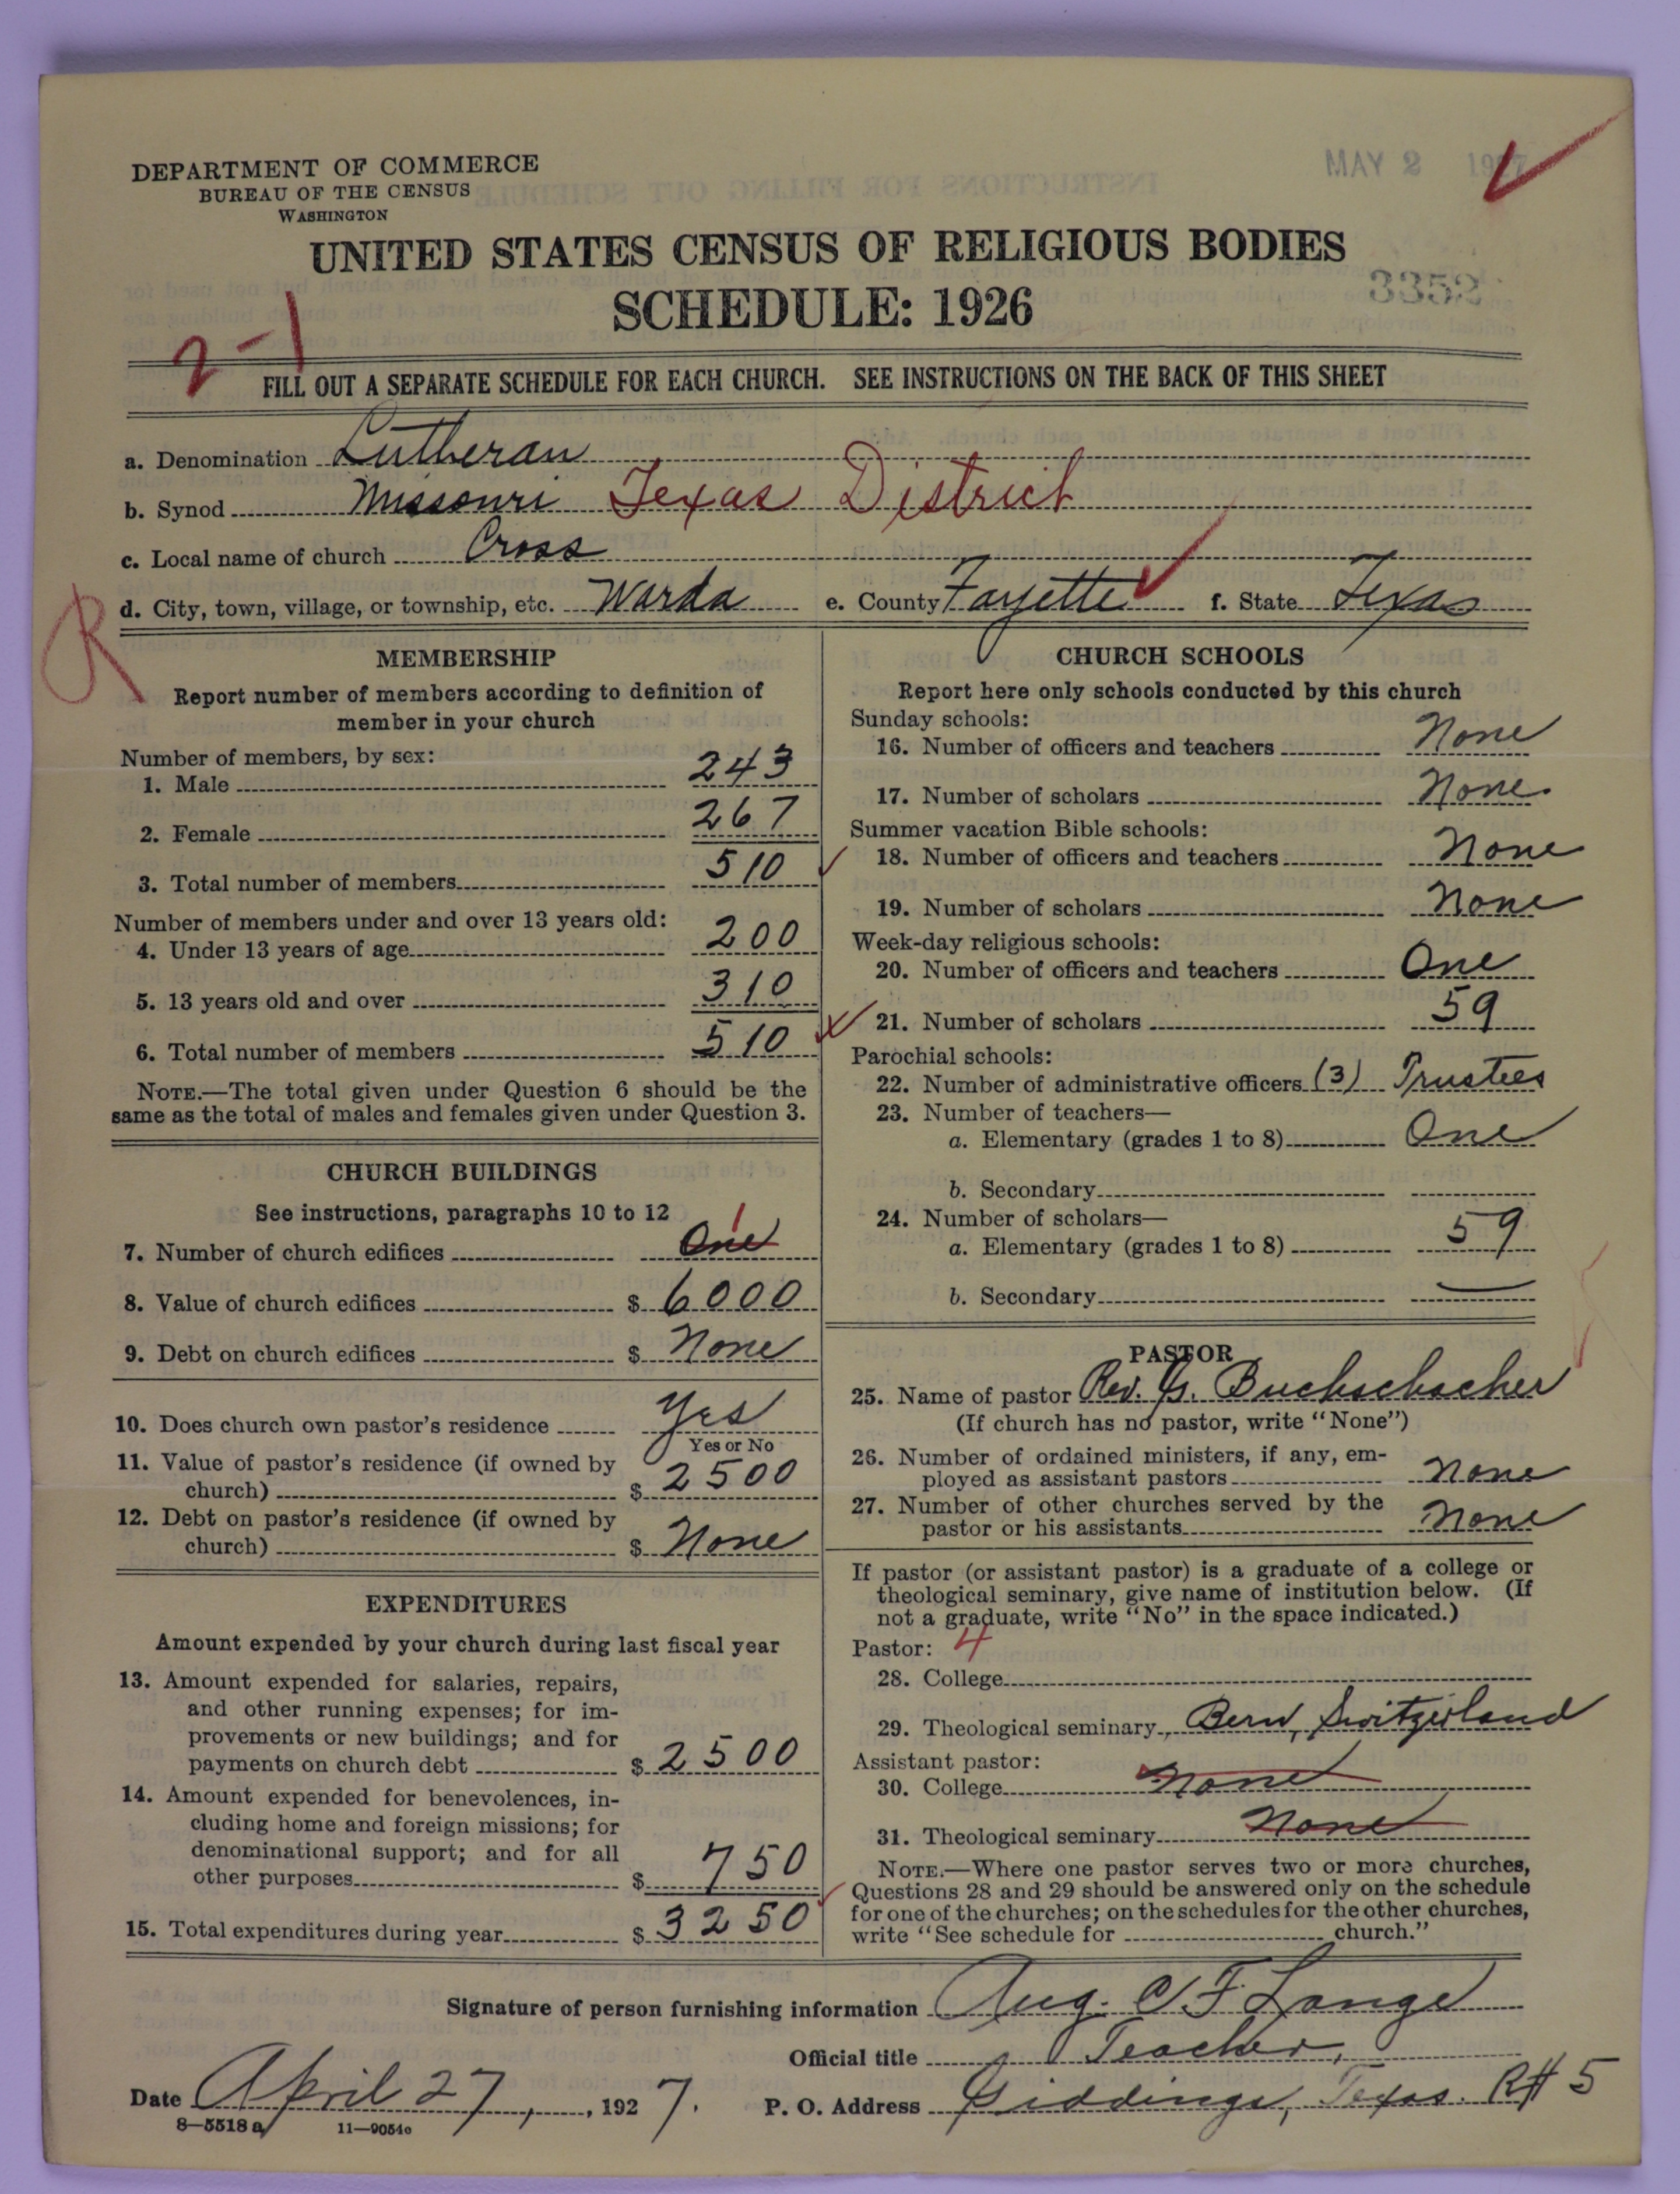 DEPARTMENT OF COMMERCE
BUREAU OF THE CENSUS
WASHINGTON
MAY 2 1927
UNITED STATES CENSUS OF RELIGIOUS BODIES
SCHEDULE: 1926
3352
2-1
FILL OUT A SEPARATE SCHEDULE FOR EACH CHURCH. SEE INSTRUCTIONS ON THE BACK OF THIS SHEET
a. Denomination Lutheran
b. Synod Missouri Texas District
c. Local name of church Cross
d. City, town, village, or township, etc. Warda e. County Fayette f. State Texas
R
MEMBERSHIP
Report number of members according to definition of
member in your church
Number of members, by sex:
1. Male 243
2. Female 267
3. Total number of members 510
Number of members under and over 13 years old:
4. Under 13 years of age 200
5. 13 years old and over 310
6. Total number of members 510
NOTE.—The total given under Question 6 should be the
same as the total of males and females given under Question 3.
CHURCH BUILDINGS
See instructions, paragraphs 10 to 12
7. Number of church edifices One 1
8. Value of church edifices $ 6000
9. Debt on church edifices $ None
10. Does church own pastor's residence Yes
Yes or No
11. Value of pastor's residence (if owned by
church) $ 2500
12. Debt on pastor's residence (if owned by
church) $ None
EXPENDITURES
Amount expended by your church during last fiscal year
13. Amount expended for salaries, repairs,
and other running expenses; for im-
provements or new buildings; and for
payments on church debt $ 2500
14. Amount expended for benevolences, in-
cluding home and foreign missions; for
denominational support; and for all
other purposes $ 750
15. Total expenditures during year $ 3250
CHURCH SCHOOLS
Report here only schools conducted by this church
Sunday schools:
16. Number of officers and teachers None
17. Number of scholars None.
Summer vacation Bible schools:
18. Number of officers and teachers None
19. Number of scholars None
Week-day religious schools:
20. Number of officers and teachers One
21. Number of scholars 59
Parochial schools:
22. Number of administrative officers (3) Trustees
23. Number of teachers—
a. Elementary (grades 1 to 8) One
b. Secondary
24. Number of scholars—
a. Elementary (grades 1 to 8) 59
b. Secondary —
PASTOR
25. Name of pastor Rev. G. Buchschacher
(If church has no pastor, write "None")
26. Number of ordained ministers, if any, em-
ployed as assistant pastors None
27. Number of other churches served by the
pastor or his assistants None
If pastor (or assistant pastor) is a graduate of a college or
theological seminary, give name of institution below. (If
not a graduate, write "No" in the space indicated.)
Pastor: 4
28. College
29. Theological seminary Bern, Switzerland
Assistant pastor:
30. College None
31. Theological seminary None
NOTE.—Where one pastor serves two or more churches,
Questions 28 and 29 should be answered only on the schedule
for one of the churches; on the schedules for the other churches,
write "See schedule for church."
Signature of person furnishing information Aug. C F. Lange
Official title Teacher,
Date April 27, , 1927. P. O. Address Giddings, Texas. R# 5
8—5518 a 11—9054c